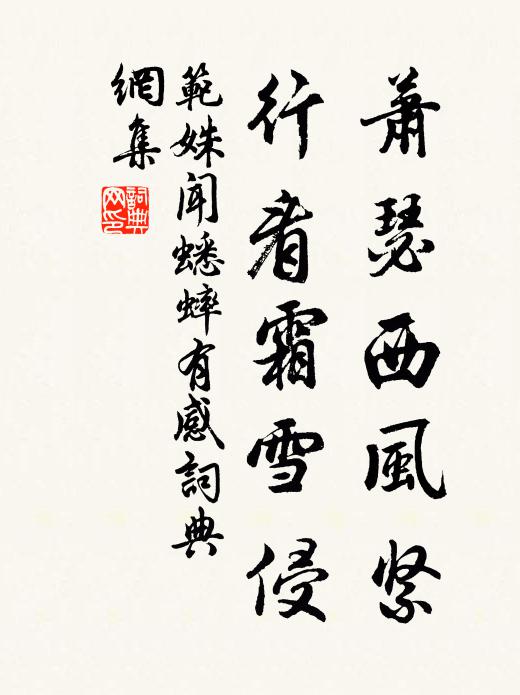 蕭瑟西風緊
行看霜雪侵
範姝聞蟋蟀有感詞典
網集
詞典
网印